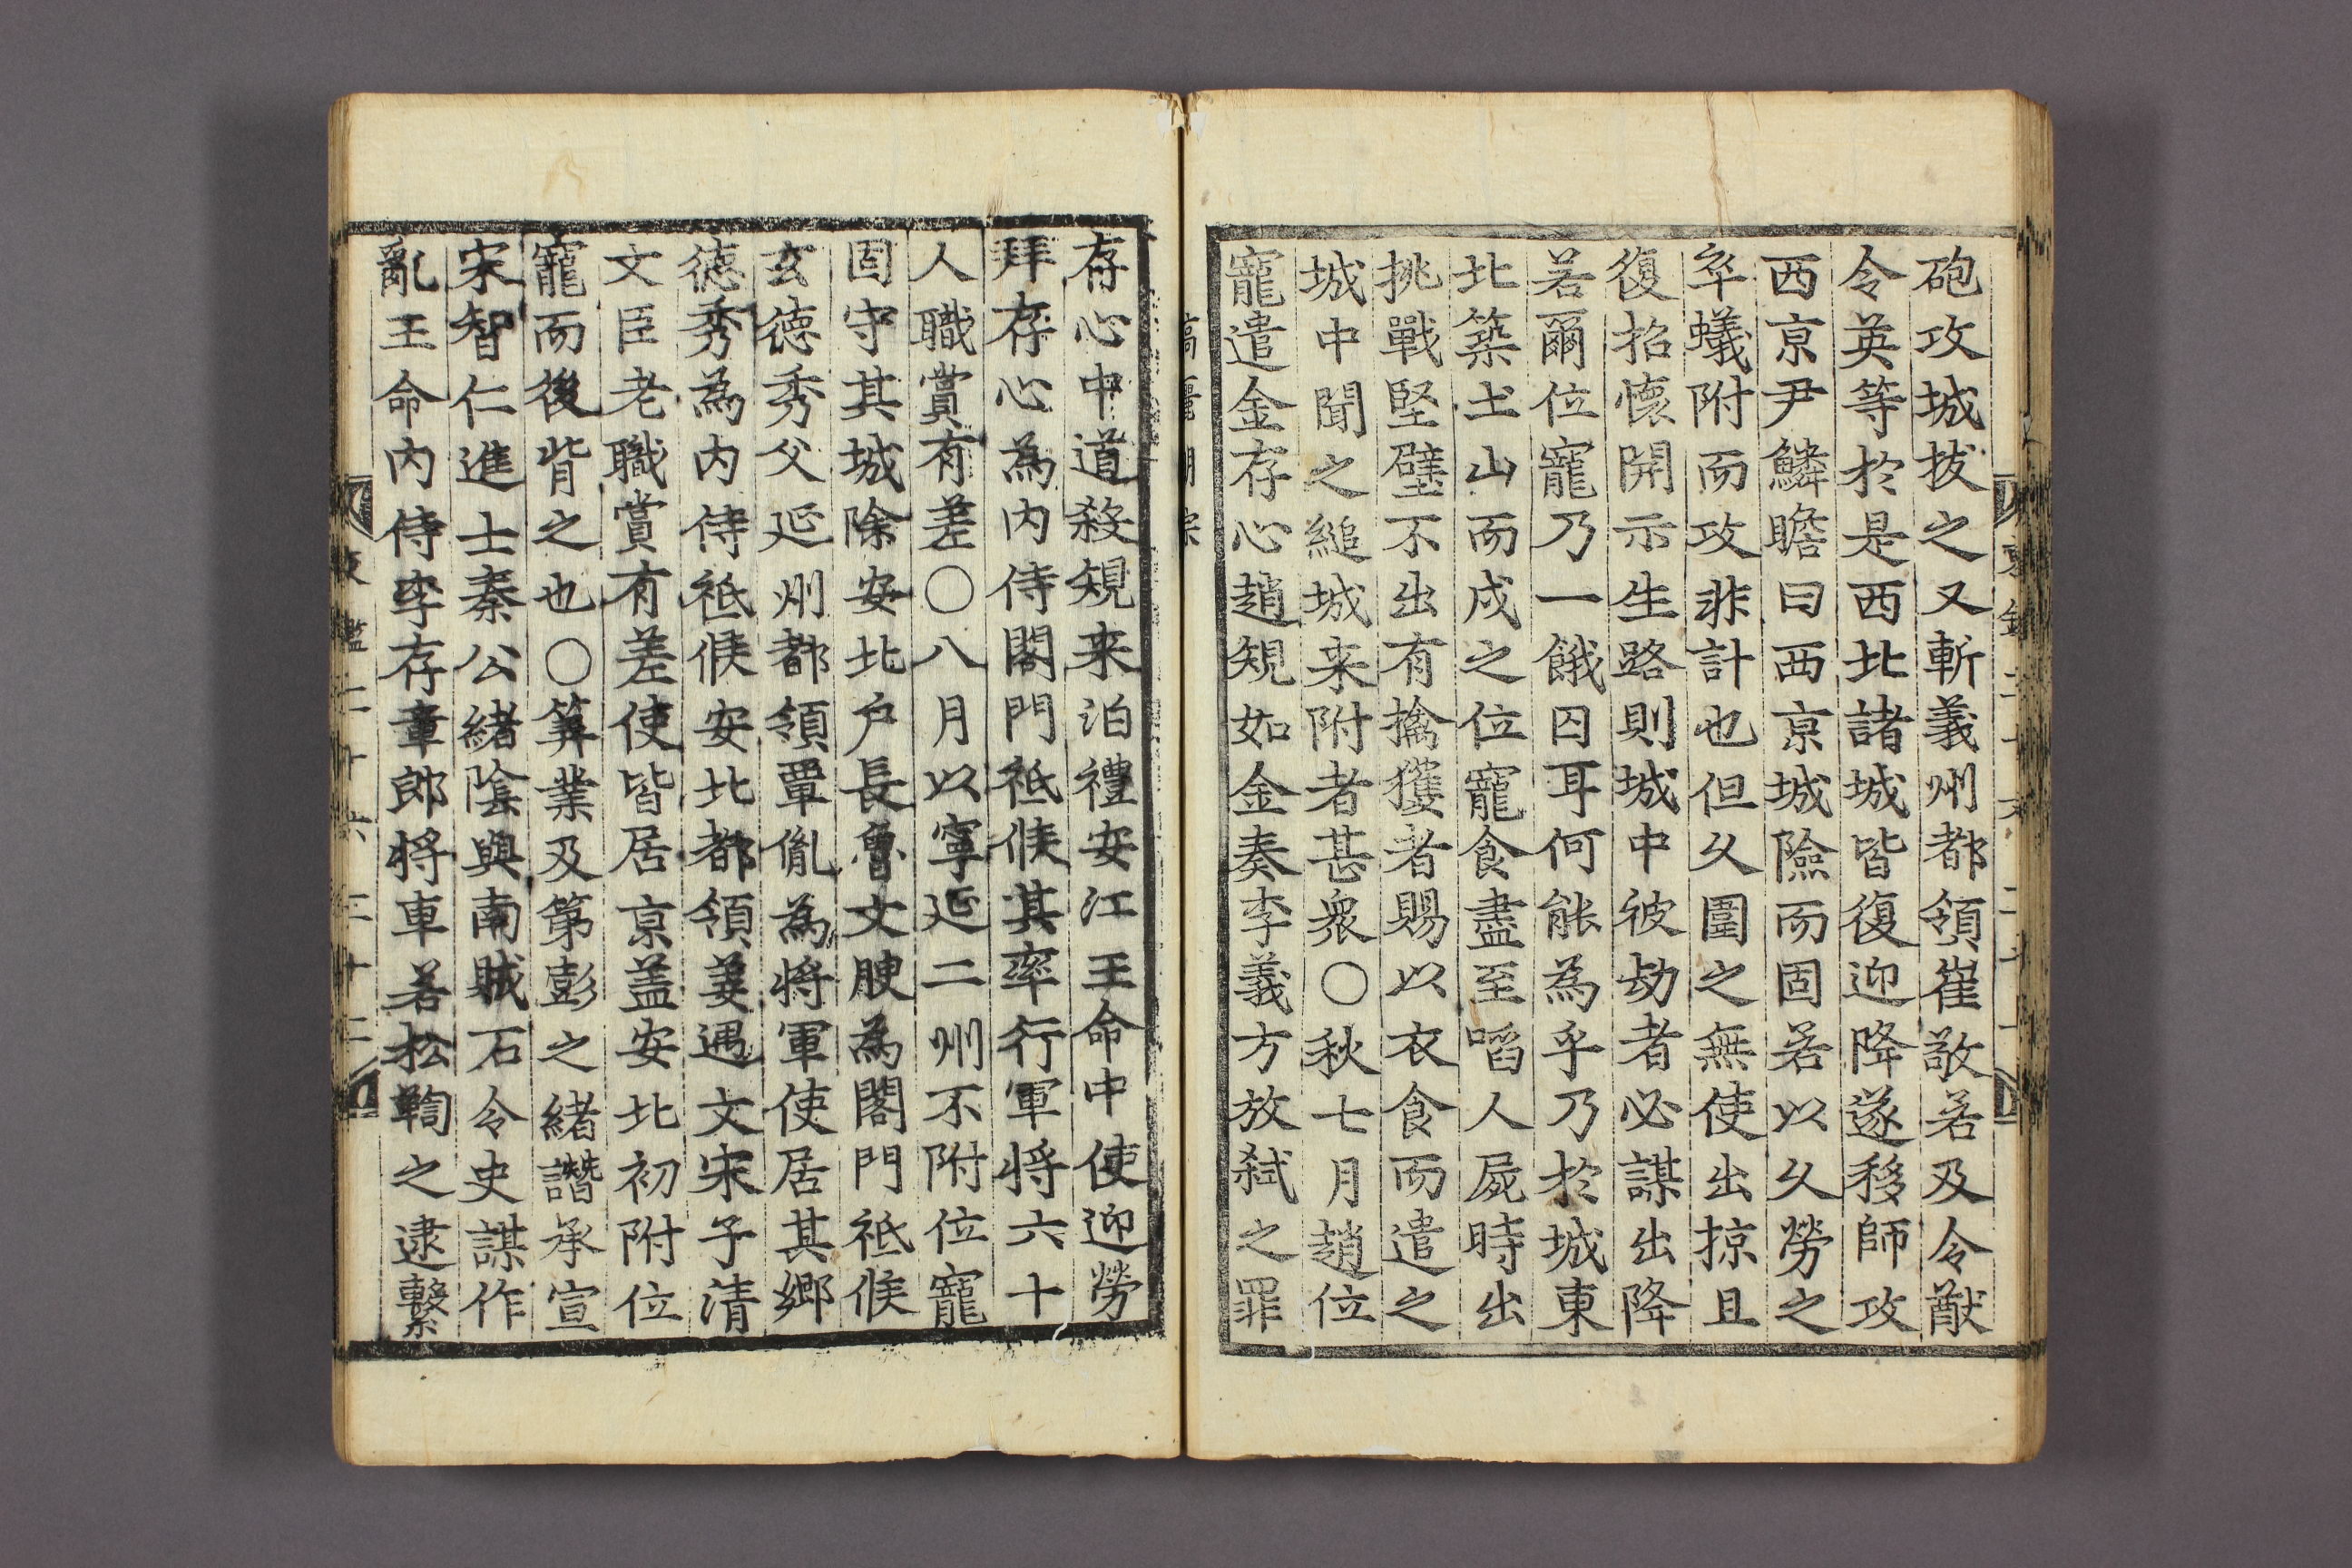 砲攻城拔之又斬義州都領崔敬若及令猷
令英等於是西北諸城皆復迎降遂移師攻
西京尹鱗瞻曰西京城險而固若以久勞之
卒蟻附而攻非計也但久圍之無使出掠且
復招懷開示生路則城中彼劫者必謀出降
若爾位寵乃一餓囚耳何能為乎乃於城東
北築土山而戍之位寵食盡至啗人屍時出
挑戰堅壁不出有擒獲者賜以衣食而遣之
城中聞之縋城来附者甚衆〇秋七月趙位
寵遣金存心趙規如金奏李義方放弑之罪
存心中道殺規来泊禮安江王命中使迎勞
拜存心為内侍閤門祗候其率行軍将六十
人職賞有差〇八月以寧延二州不附位寵
固守其城除安北戶長魯文腴為閤門祗候
玄德秀父延州都領覃胤為将軍使居其鄉
德秀為内侍祗候安北都領姜遇文宋子清
文臣老職賞有差使皆居京盖安北初附位
寵而後背之也〇筭業及第彭之緒譖承宣
宋智仁進士秦公緒陰與南賊石令史謀作
亂王命内侍李存章郎将車若松鞫之逮繫